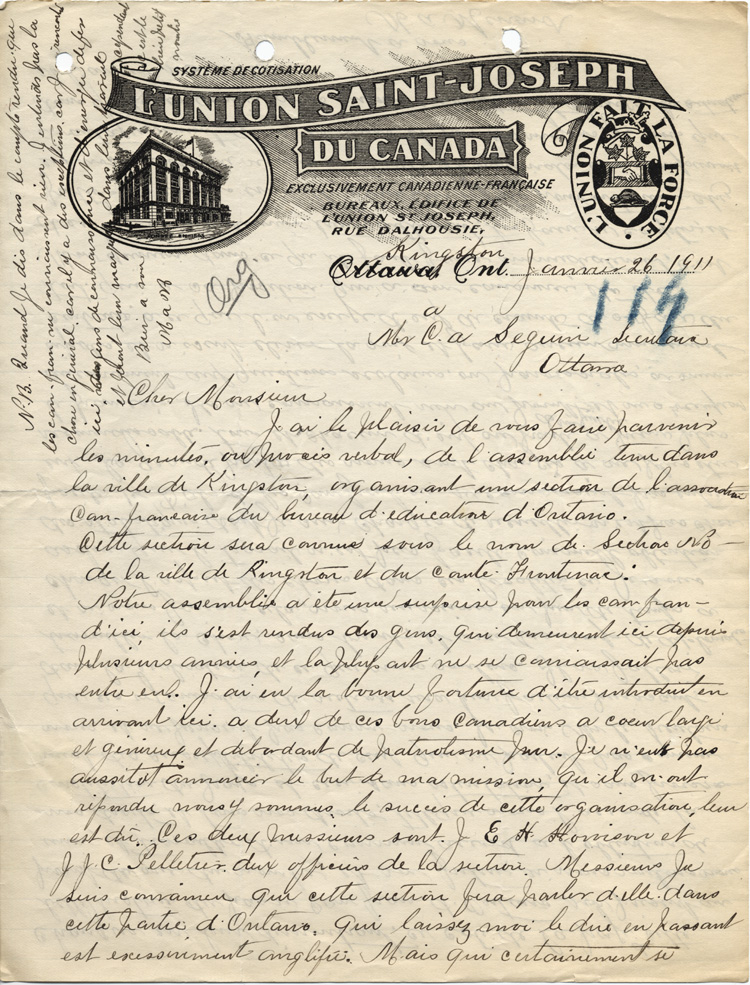 SYSTÈME DE COTISATION
L'UNION SAINT-JOSEPH
DU CANADA
EXCLUSIVEMENT CANADIENNE-FRANÇAISE
BUREAUX, ÉDIFICE DE
L'UNION ST JOSEPH,
RUE DALHOUSIE,
L'UNION FAIT LA FORCE
Kingston
Ottawa, Ont. Janvier 26 1911
Org.
114
a
Mr C. a Seguin Secretaire
Ottawa
Cher Monsieur
J ai le plaisir de vous faire parvenir
les minutes, ou procès verbal, de l'assemblée tenue dans
la ville de Kingston, organisant une section de l'association
Can-francaise du bureau d'education d'Ontario.
Cette section sera connue sous le nom de Section No —
de la ville de Kingston et du comté Frontenac.
Notre assemblée a été une surprise pour les can-fran-
d'ici, ils s'est rendus des gens, qui demeurent ici depuis
plusieurs années, et la plupart ne se connaissait pas
entre eux. J'ai eu la bonne fortune d'être introduit en
arrivant ici, a deux de ces bons Canadiens a coeur large
et généreux et debordant de patriotisme pur. Je n'eut pas
aussitot annoncer le but de ma mission, qu'il m'ont
répondu nous y sommes, le succès de cette organisation, leur
est dû. Ces deux messieurs sont. J E H Horrison et
J. J. C. Pelletier. deux officiers de la section. Messieurs Je
suis convaincu que cette section fera parler d'elle dans
cette partie d'Ontario, qui laissez moi le dire en passant
est excessivement anglifiée. Mais qui certainement se
N.B. Quand Je dis dans le compte rendu que
les can-fran- ne connaissent rien. J entends pas la
chose en général, car il y a des exceptions, car Je
ici gens de connaissance et d'energie
et dont leur dans leur
Bien a vous
M a B